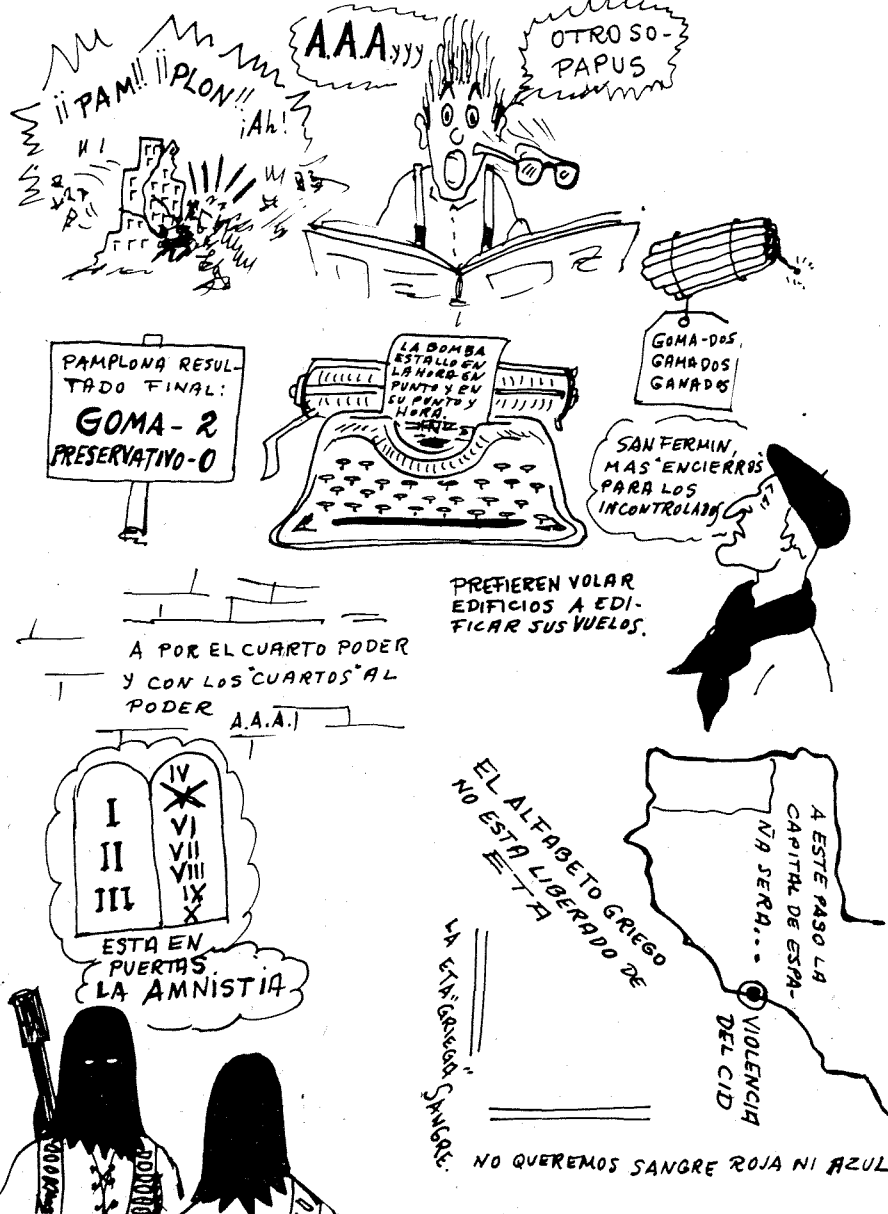 ¡¡PAM!! ¡¡PLON!!
¡Ah!
A.A.A.yyy
OTRO SO-
PAPUS
PAMPLONA RESUL-
TADO FINAL:
GOMA-2
PRESERVATIVO-0
LA BOMBA
ESTALLO EN
LA HORA EN
PUNTO Y EN
SU PUNTO Y
HORA.
GOMA-DOS,
GAMADOS
GANADOS
SAN FERMIN,
MAS "ENCIERROS"
PARA LOS
INCONTROLADOS
PREFIEREN VOLAR
EDIFICIOS A EDI-
FICAR SUS VUELOS.
A POR EL CUARTO PODER
Y CON LOS "CUARTOS" AL
PODER
A.A.A.
I
II
III
IV
VI
VII
VIII
IX
X
ESTA EN
PUERTAS
LA AMNISTIA
EL ALFABETO GRIEGO
NO ESTA LIBERADO DE
ETA
LA ETA "GRIEGA" SANGRE.
A ESTE PASO LA
CAPITAL DE ESPA-
ÑA SERA...
VIOLENCIA
DEL CID
NO QUEREMOS SANGRE ROJA NI AZUL